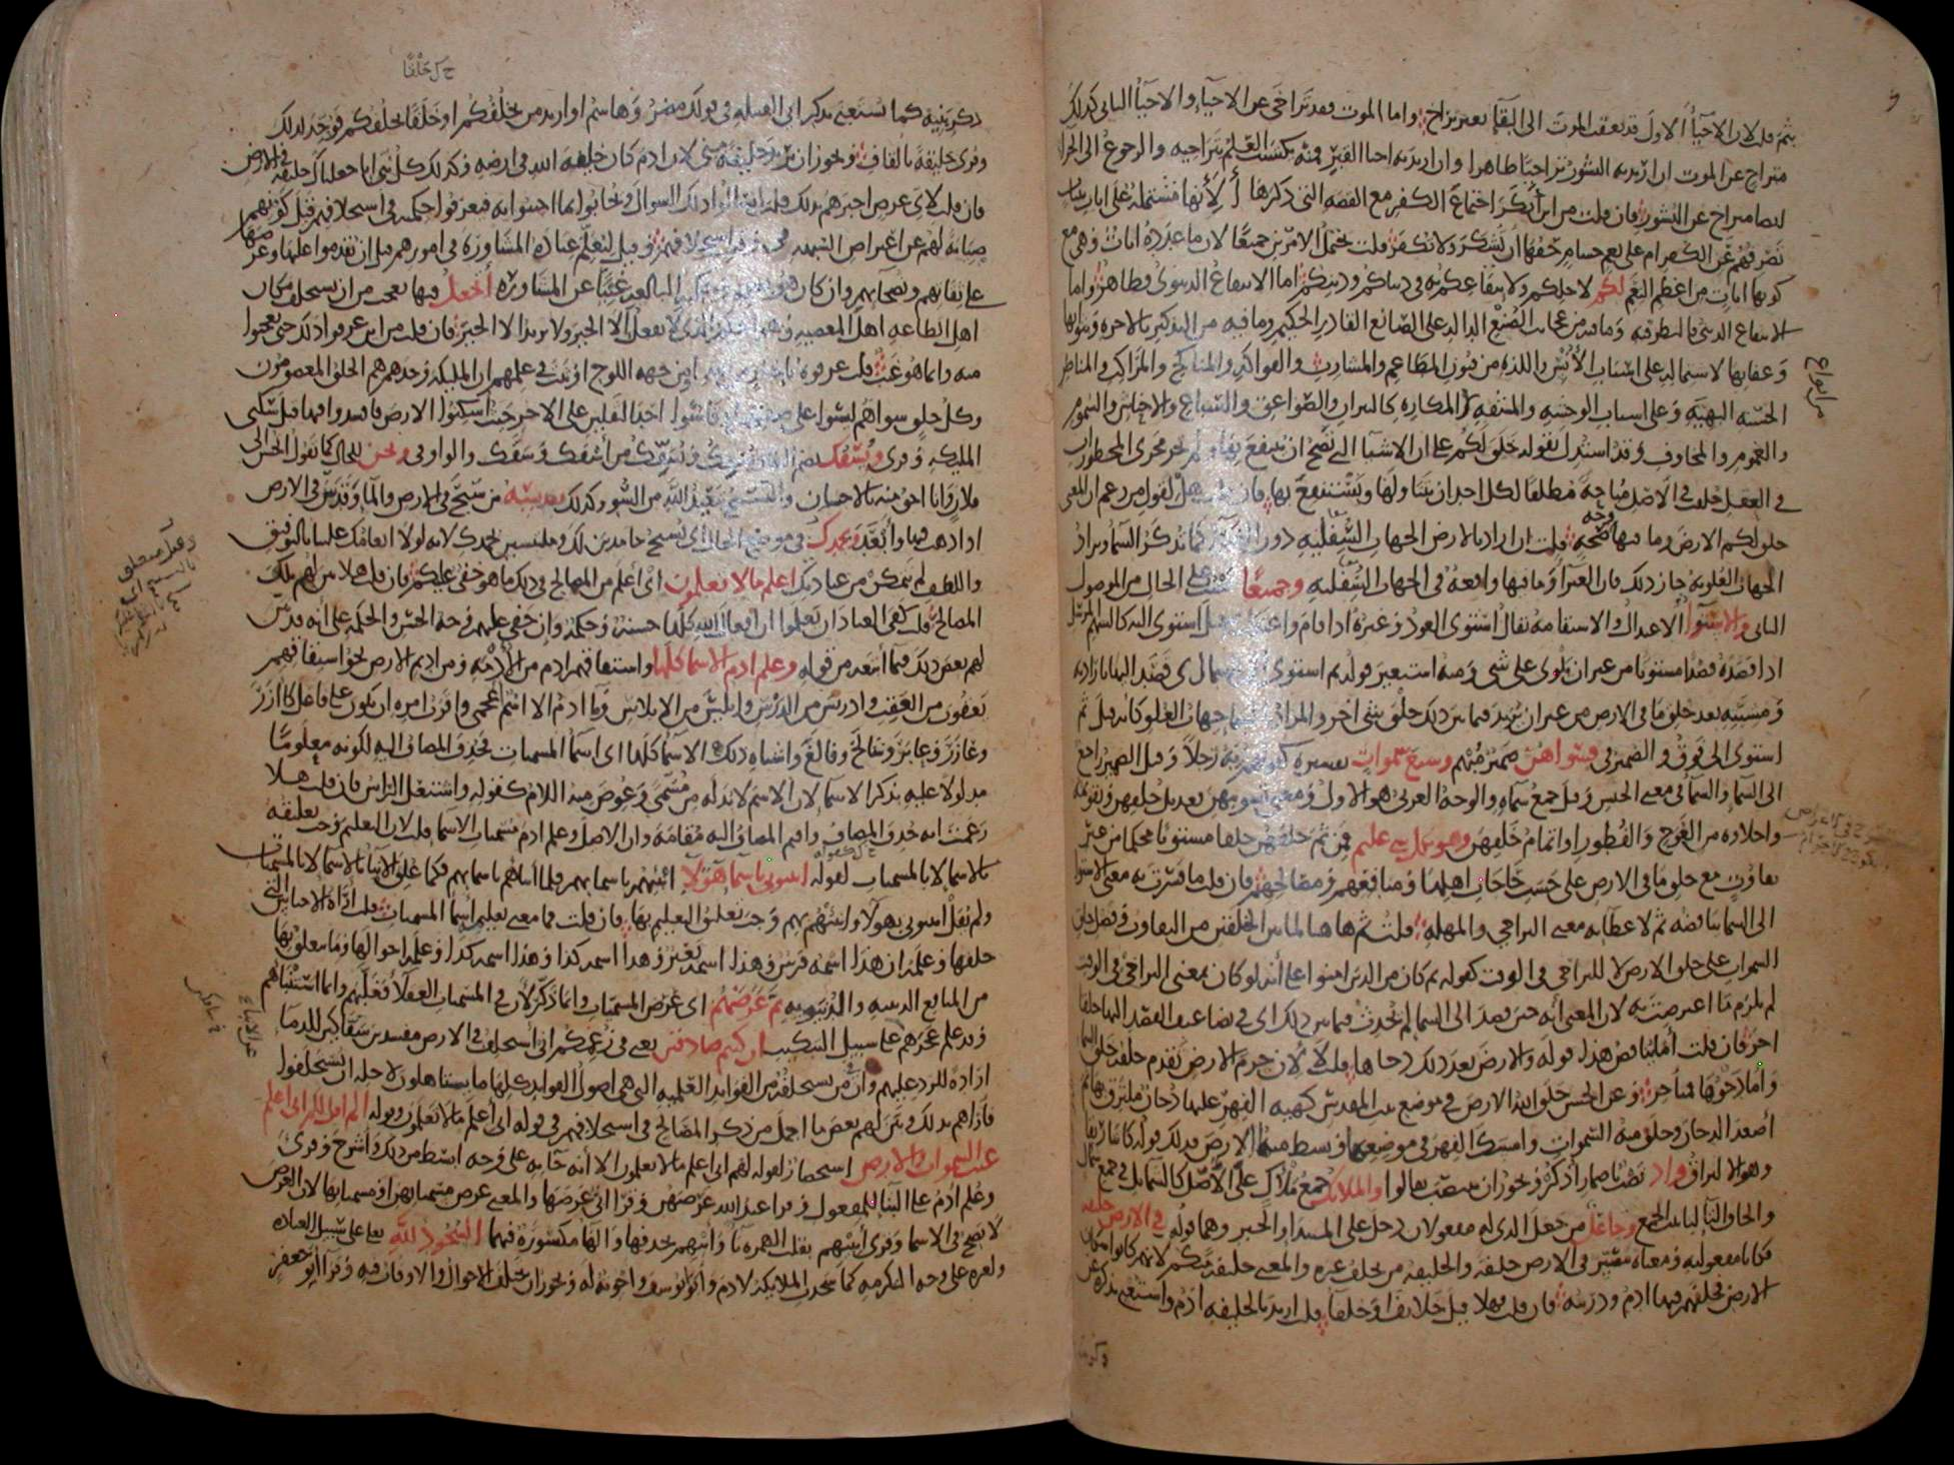 ثم قلت لان الاحياء الاول قد تعقب الموت الى البقاء بغير تراخ واما الموت فقد تراخى عن الاحياء والاحياء الثانى كذلك
متراخ عن الموت ان اريد به النشور تراخيا ظاهرا وان اريد به احياء القبر فمنه يكتسب العلم بتراخيه والرجوع الى الجزاء
ايضا متراخ عن النشور فان قلت من اين انكر اجتماع الكفر مع القصة التى ذكرها ألأنها مشتملة على ايات بينات
تصرفهم عن الكفر ام على نعم جسام حقها ان تشكر ولا تكفر قلت يحتمل الامرين جميعا لان ما عدده ايات وهى مع
كونها ايات من اعظم النعم لكم لاجلكم ولانتفاعكم به فى دنياكم ودينكم اما الانتفاع الدنيوى فظاهر واما
الانتفاع الدينى فالنظر فيه وما فيه من عجائب الصنع الدالة على الصانع القادر الحكيم وما فيه من التذكير بالاخرة وثوابها
وعقابها لاشتماله على اسباب الانس واللذة من فنون المطاعم والمشارب والفواكه والمناكح والمراكب والمناظر
الحسنة البهية وعلى اسباب الوحشة والمشقة من المكاره كالنيران والصواعق والسباع والاحناش والسموم
والغموم والمخاوف وقد استدل بقوله خلق لكم على ان الاشياء التى تصح ان ينتفع بها ولم تجر مجرى المحظورات
فى العقل خلقت فى الاصل مباحة مطلقا لكل احد ان يتناولها ويستنفع بها فان قلت هل لقول من زعم ان المعنى
خلق لكم الارض وما فيها وجه صحة قلت ان اراد بالارض الجهات السفلية دون الغبراء كما تذكر السماء ويراد
الجهات العلوية جاز ذلك فان الغبراء وما فيها واقعة فى الجهات السفلية وجميعا نصب على الحال من الموصول
الثانى والاستواء الاعتدال والاستقامة يقال استوى العود وغيره اذا قام واعتدل ثم قيل استوى اليه كالسهم المرسل
اذا قصده قصدا مستويا من غير ان يلوى على شىء ومنه استعير قوله ثم استوى الى السماء اى قصد اليها بارادته
ومشيته بعد خلق ما فى الارض من غير ان يريد فيما بين ذلك خلق شىء اخر والمراد بالسماء جهات العلو كانه قيل ثم
استوى الى فوق والضمير فى فسواهن ضمير مبهم وسبع سموات تفسيره كقولهم ربه رجلا وقيل الضمير راجع
الى السماء والسماء فى معنى الجنس وقيل جمع سماءة والوجه العربى هو الاول ومعنى تسويتهن تعديل خلقهن وتقويمه
واخلاؤه من العوج والفطور او اتمام خلقهن وهو بكل شىء عليم فمن ثم خلقهن خلقا مستويا محكما من غير
تفاوت مع خلق ما فى الارض على حسب حاجات اهلها ومنافعهم ومصالحهم فان قلت ما فسرت به معنى الاستواء
الى السماء يناقضه ثم لاعطائه معنى التراخى والمهلة قلت ثم هاهنا لما بين الخلقين من التفاوت وفضل خلق
السموات على خلق الارض لا للتراخى فى الوقت كقوله ثم كان من الذين امنوا على انه لو كان بمعنى التراخى فى الوقت
لم يلزم ما اعترضت به لان المعنى انه حين قصد الى السماء لم يحدث فيما بين ذلك اى فى تضاعيف القصد اليها خلقا
اخر فان قلت اما يناقض هذا قوله والارض بعد ذلك دحاها قلت لا لان جرم الارض تقدم خلقه خلق السماء
واما دحوها فمتاخر وعن الحسن خلق الله الارض فى موضع بيت المقدس كهيئة الفهر عليها دخان ملتزق بها ثم
أصعد الدخان وخلق منه السموات وامسك الفهر فى موضعها وبسط منها الارض فذلك قوله كانتا رتقا
وهو الالتزاق واذ نصب باضمار اذكر ويجوز ان ينتصب بقالوا والملائكة جمع ملأك على الاصل كالشمائل فى جمع شمأل
والحاق التاء لتانيث الجمع وجاعل من جعل الذى له مفعولان دخل على المبتدا والخبر وهما قوله فى الارض خليفة
فكانا مفعوليه ومعناه مصير فى الارض خليفة والخليفة من يخلف غيره والمعنى خليفة منكم لانهم كانوا سكان
الارض فخلفهم فيها ادم وذريته فان قلت فهلا قيل خلائف او خلفاء قلت اريد بالخليفة ادم واستغنى بذكره عن
ذكر بنيه كما تستغنى بذكر ابى القبيلة فى قولك مضر وهاشم او اريد من يخلفكم او خلقا يخلفكم فوحد لذلك
وقرئ خليقة بالقاف ويجوز ان يريد خليفة منى لان ادم كان خليفة الله فى ارضه وكذلك كل نبى انا جعلناك خليفة فى الارض
فان قلت لاى غرض اخبرهم بذلك قلت ليسألوا ذلك السؤال ويجابوا بما اجيبوا به فيعرفوا حكمته فى استخلافهم قبل كونهم
صيانة لهم عن اعتراض الشبهة فى وقت استخلافهم وقيل ليعلم عباده المشاورة فى امورهم قبل ان يقدموا عليها وعرضها
على ثقاتهم ونصحائهم وان كان هو بعلمه وحكمته البالغة غنيا عن المشاورة أتجعل فيها تعجب من ان يستخلف مكان
اهل الطاعة اهل المعصية وهو الحكيم الذى لا يفعل الا الخير ولا يريد الا الخير فان قلت من اين عرفوا ذلك حتى تعجبوا
منه وانما هو غيب قلت عرفوه باخبار من الله او من جهة اللوح او ثبت فى علمهم ان الملئكة وحدهم هم الخلق المعصومون
وكل خلق سواهم ليسوا على صفتهم او قاسوا احد الثقلين على الاخر حيث اسكنوا الارض فافسدوا فيها قبل سكنى
الملئكة وقرئ ويسفك بضم الفاء ويسفك ويسفك من أسفك وسفك والواو فى ونحن للحال كما تقول اتحسن الى
فلان وانا احق منه بالاحسان والتسبيح تبعيد الله من السوء وكذلك تقديسه من سبح فى الارض والماء وقدس فى الارض
اذا ذهب فيها وابعد وبحمدك فى موضع الحال اى نسبح حامدين لك وملتبسين بحمدك لانه لولا انعامك علينا بالتوفيق
واللطف لم نتمكن من عبادتك اعلم ما لا تعلمون اى أعلم من المصالح فى ذلك ما هو خفى عليكم فان قلت هلا بين لهم تلك
المصالح قلت كفى العباد ان يعلموا ان افعال الله كلها حسنة وحكمة وان خفى عليهم وجه الحسن والحكمة على انه قد بين
لهم بعض ذلك فيما أتبعه من قوله وعلم ادم الاسماء كلها واشتقاقهم ادم من الأدمة ومن اديم الارض نحو اشتقاقهم
يعقوب من العقب وادريس من الدرس وابليس من الابلاس وما ادم الا اسم أعجمى واقرب امره ان يكون على فاعل كآزر
وعازر وعابر وشالخ وفالغ واشباه ذلك الاسماء كلها اى اسماء المسميات فحذف المضاف اليه لكونه معلوما
مدلولا عليه بذكر الاسماء لان الاسم لا بد له من مسمى وعوض منه اللام كقوله واشتعل الراس فان قلت هلا
زعمت انه حذف المضاف واقيم المضاف اليه مقامه وان الاصل وعلم ادم مسميات الاسماء قلت لان التعليم وجب تعليقه
بالاسماء لا بالمسميات لقوله انبئونى باسماء هؤلاء انبئهم باسمائهم فلما انبأهم باسمائهم فكما علق الانباء بالاسماء لا بالمسميات
ولم يقل انبئونى بهؤلاء وانبئهم بهم وجب تعليق التعليم بها فان قلت فما معنى تعليمه اسماء المسميات قلت أراه الاجناس التى
خلقها وعلمه ان هذا اسمه فرس وهذا اسمه بعير وهذا اسمه كذا وهذا اسمه كذا وعلمه احوالها وما يتعلق بها
من المنافع الدينية والدنيوية ثم عرضهم اى عرض المسميات وانما ذكر لان فى المسميات العقلاء فغلبهم وانما استنبأهم
وقد علم عجزهم على سبيل التبكيت ان كنتم صادقين يعنى فى زعمكم انى أستخلف فى الارض مفسدين سفاكين للدماء
ارادة للرد عليهم وان فيمن يستخلفه من الفوائد العلمية التى هى اصول الفوائد كلها ما يستاهلون لاجله ان يستخلفوا
فاراهم بذلك وبين لهم بعض ما اجمل من ذكر المصالح فى استخلافهم فى قوله انى أعلم ما لا تعلمون وقوله الم اقل لكم انى اعلم
غيب السموات والارض استحضار لقوله لهم انى اعلم ما لا تعلمون الا انه جاء به على وجه ابسط من ذلك وأشرح وقرئ
وعلم ادم على البناء للمفعول وقرا عبد الله عرضهن وقرا ابى عرضها والمعنى عرض مسمياتهن او مسمياتها لان العرض
لا يصح فى الاسماء وقرئ أنبيهم بقلب الهمزة ياء وأنبهم بحذفها والهاء مكسورة فيهما السجود لله تعالى على سبيل العبادة
ولغيره على وجه التكرمة كما سجدت الملائكة لادم وأبو يوسف واخوته له ويجوز ان يختلف الاحوال والاوقات فيه وقرا ابو جعفر